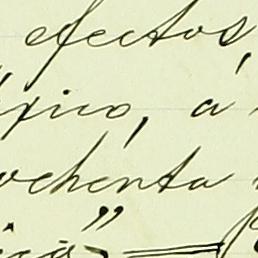 efectos,
xico, á
ochenta